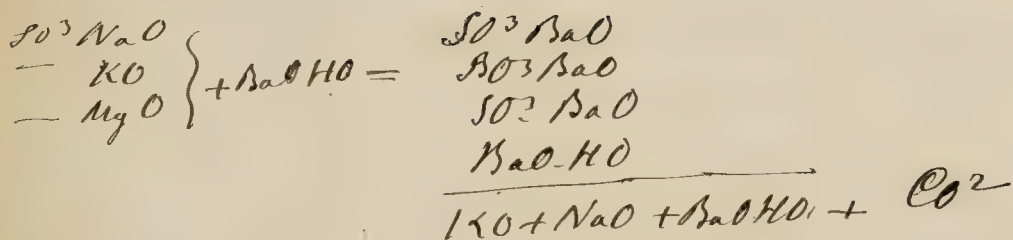 SO³ NaO
— KO } + BaO HO =
— MgO
SO³ BaO
BO³ BaO
SO³ BaO
BaO-HO
KO + NaO + BaOHO + CO²